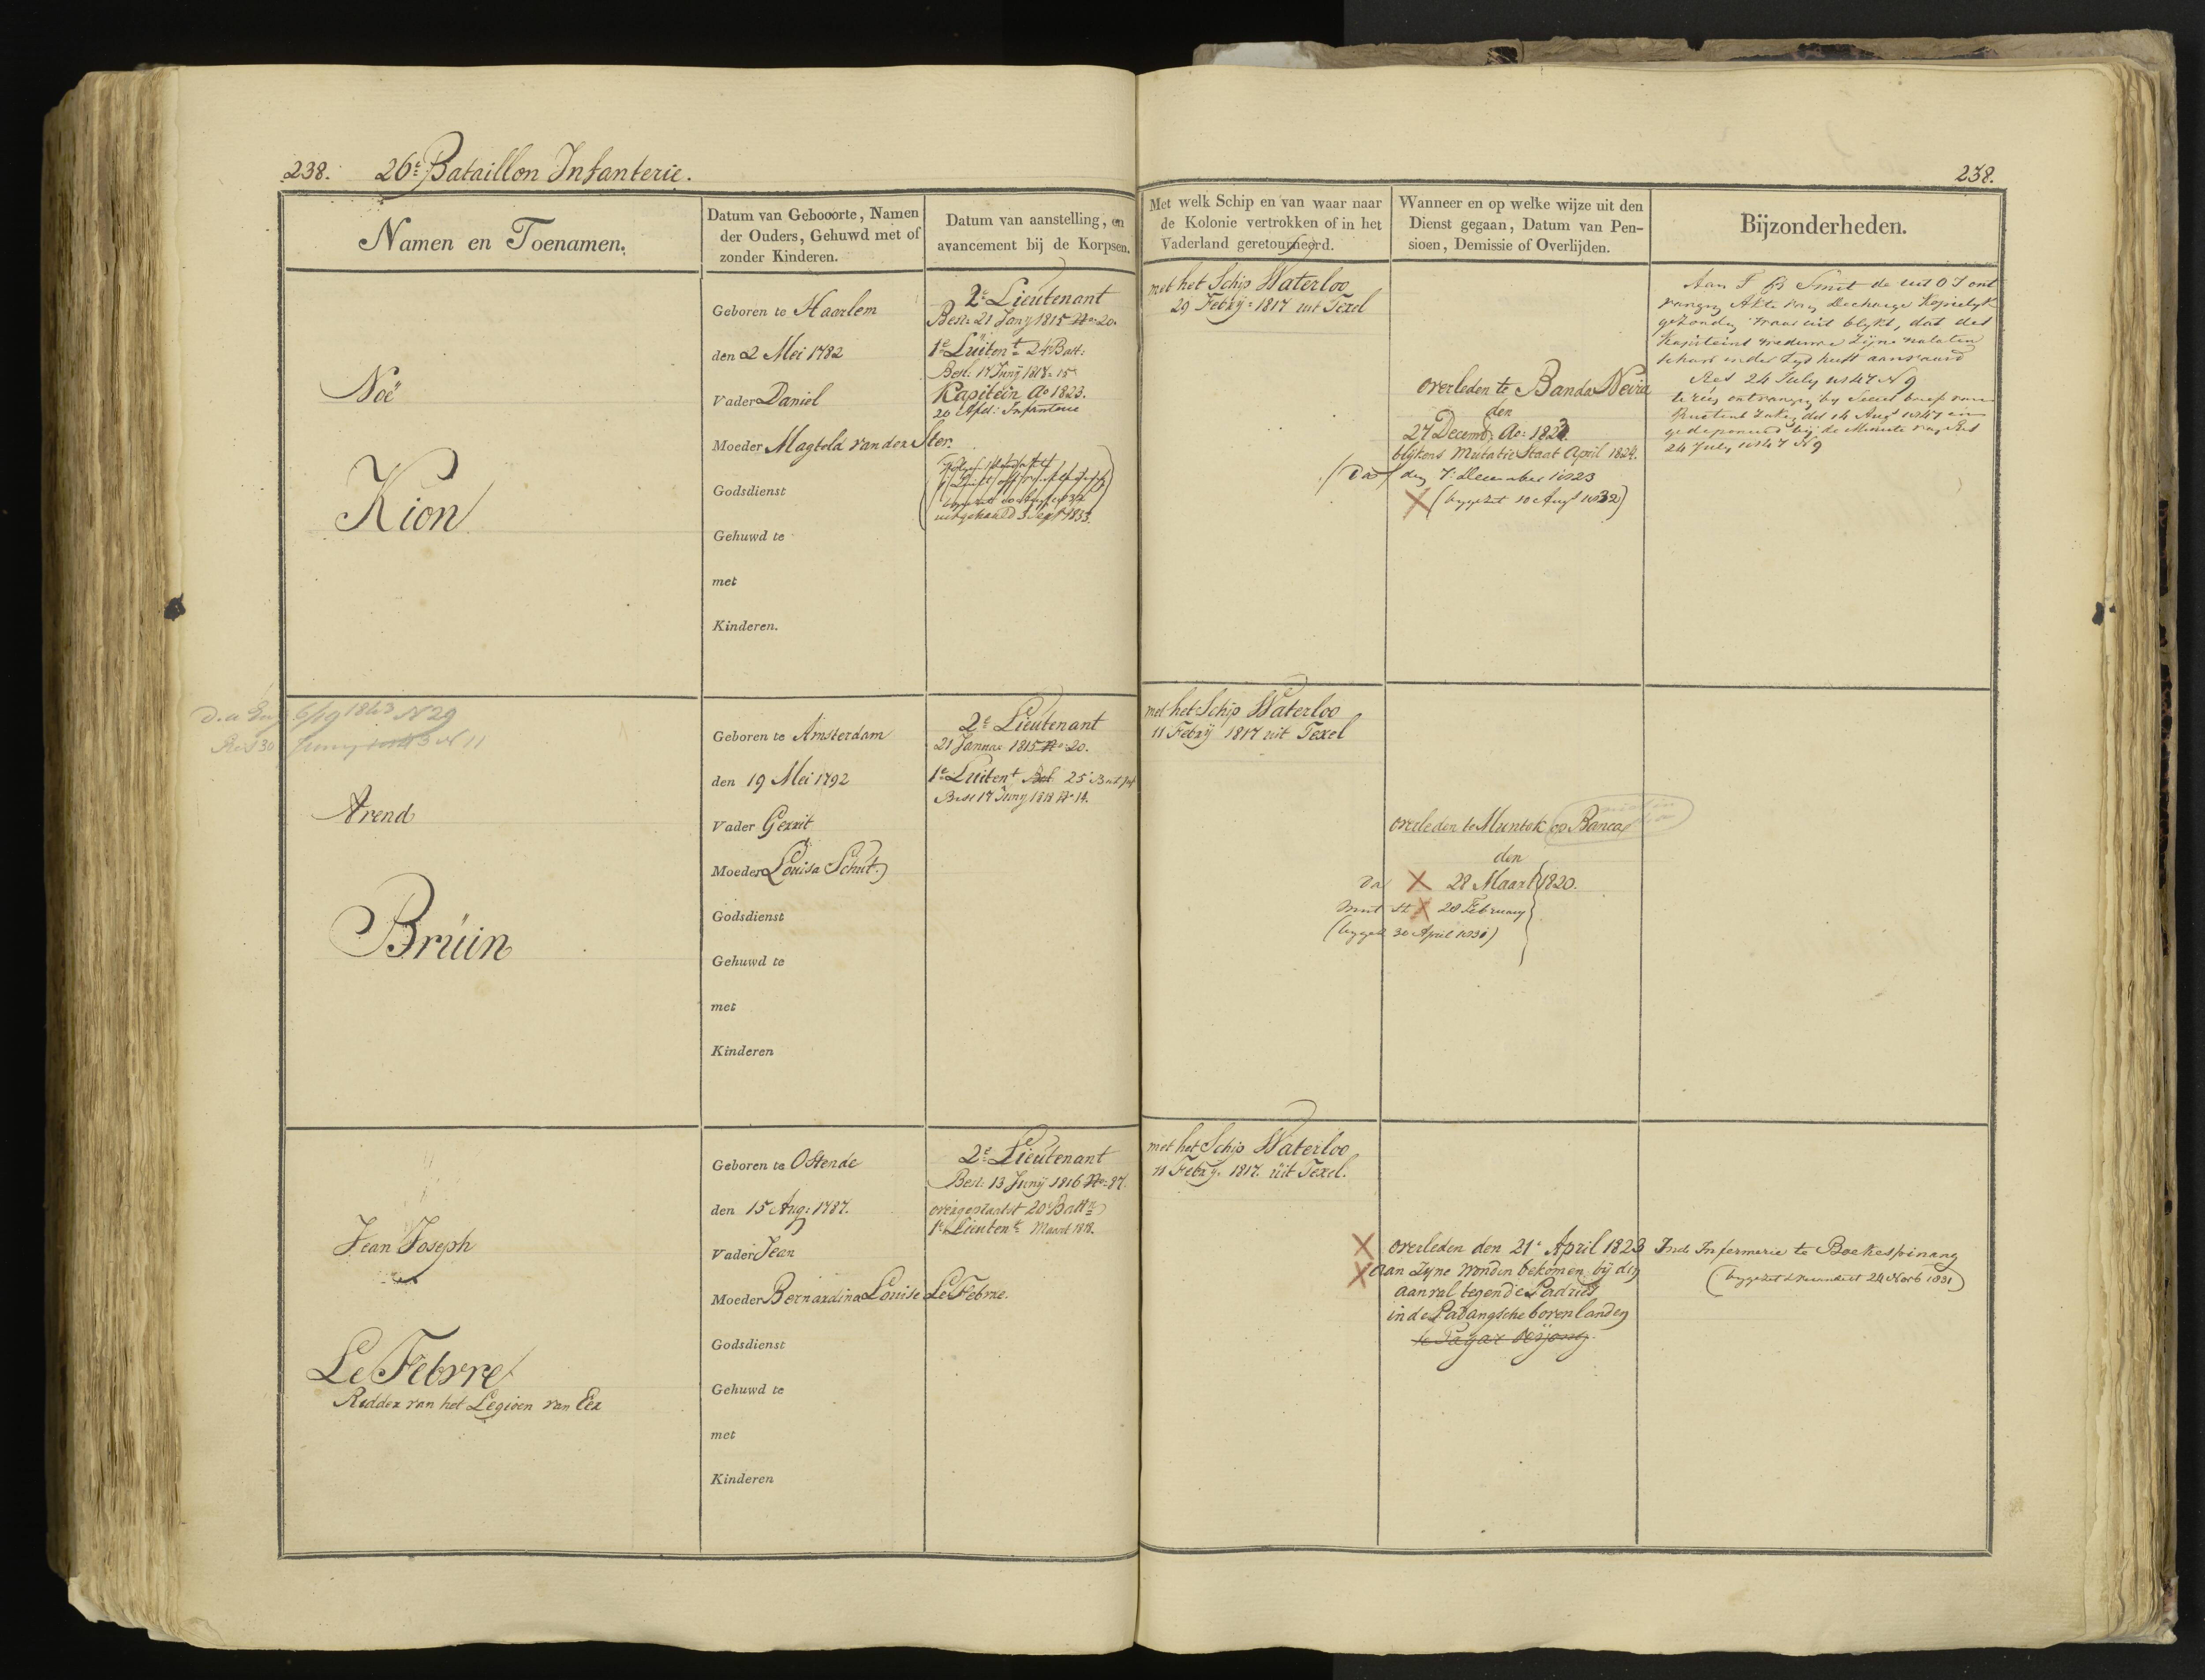 238. 26e Bataillon Infanterie.
238.
Namen en Toenamen.
Datum van Gebooorte, Namen
der Ouders, Gehuwd met of
zonder Kinderen.
Datum van aanstelling, en
avancement bij de Korpsen.
Met welk Schip en van waar naar
de Kolonie vertrokken of in het
Vaderland geretourneerd.
Wanneer en op welke wijze uit den
Dienst gegaan, Datum van Pen-
sioen, Demissie of Overlijden.
Bijzonderheden.
Noë
Kion
Geboren te Haarlem
den 2 Mei 1782
Vader Daniel
Moeder Magteld van der Ster.
Godsdienst
Gehuwd te
met
Kinderen.
2e Lieutenant
Besl: 21 Jany 1815 No 20.
1e Luitent 24 Batt:
Besl. 17 Junij 1818 15
Kapitein Ao 1823.
20 Afd: Infanterie
uitgehaald 3 Sept 1833.
met het Schip Waterloo
29 Febry = 1817 uit Texel
overleden te Banda Neira
den
27 Decembr Ao: 1823
blijkens Mutatie Staat April 1824.
den 7 December 1823
(bygezet 10 Augt 1832)
Aan F B Smit de uit O I ont
vangen Akte van Decharge Kopielyk
gezonden waar uit blykt, dat des
Kapiteins weduwe zijne nalaten
schap in der tyd heeft aanvaard
Res 24 July 1847 N 9
24 July 1847 N 9
6/19 1843 N 29
Res 30 Juny 1843 N 11
Arend
Brüin
Geboren te Amsterdam
den 19 Mei 1792
Vader Gerrit
Moeder Louisa Schut.
Godsdienst
Gehuwd te
met
Kinderen
2e Lieutenant
21 Januar 1815 No 20.
1e Luitent Bat 25 Bat Inf
Besl 17 Juny 1818 No 14.
met het Schip Waterloo
11 Febry 1817 uit Texel
overleden te Muntok op Banca
den
28 Maart 1820.
28 February
(bygez 30 April 1831)
Jean Joseph
Le Febvre
Ridder van het Legioen van Eer
Geboren te Ostende
den 15 Aug: 1787.
Vader Jean
Moeder Bernardina Louise Le Febvre.
Godsdienst
Gehuwd te
met
Kinderen
2e Lieutenant
Besl: 13 Junij 1816 No 87.
overgeplaatst 20 Battn
1e Lieutent Maart 1818.
met het Schip Waterloo
11 Febry. 1817. uit Texel.
overleden den 21e April 1823
aan zyne wonden bekomen bij den
aanval tegen de Padries
in de Padangsche bovenlanden
Ind: Infermerie te Boekespinang
(bygezet & verandert 24 Novb 1831)